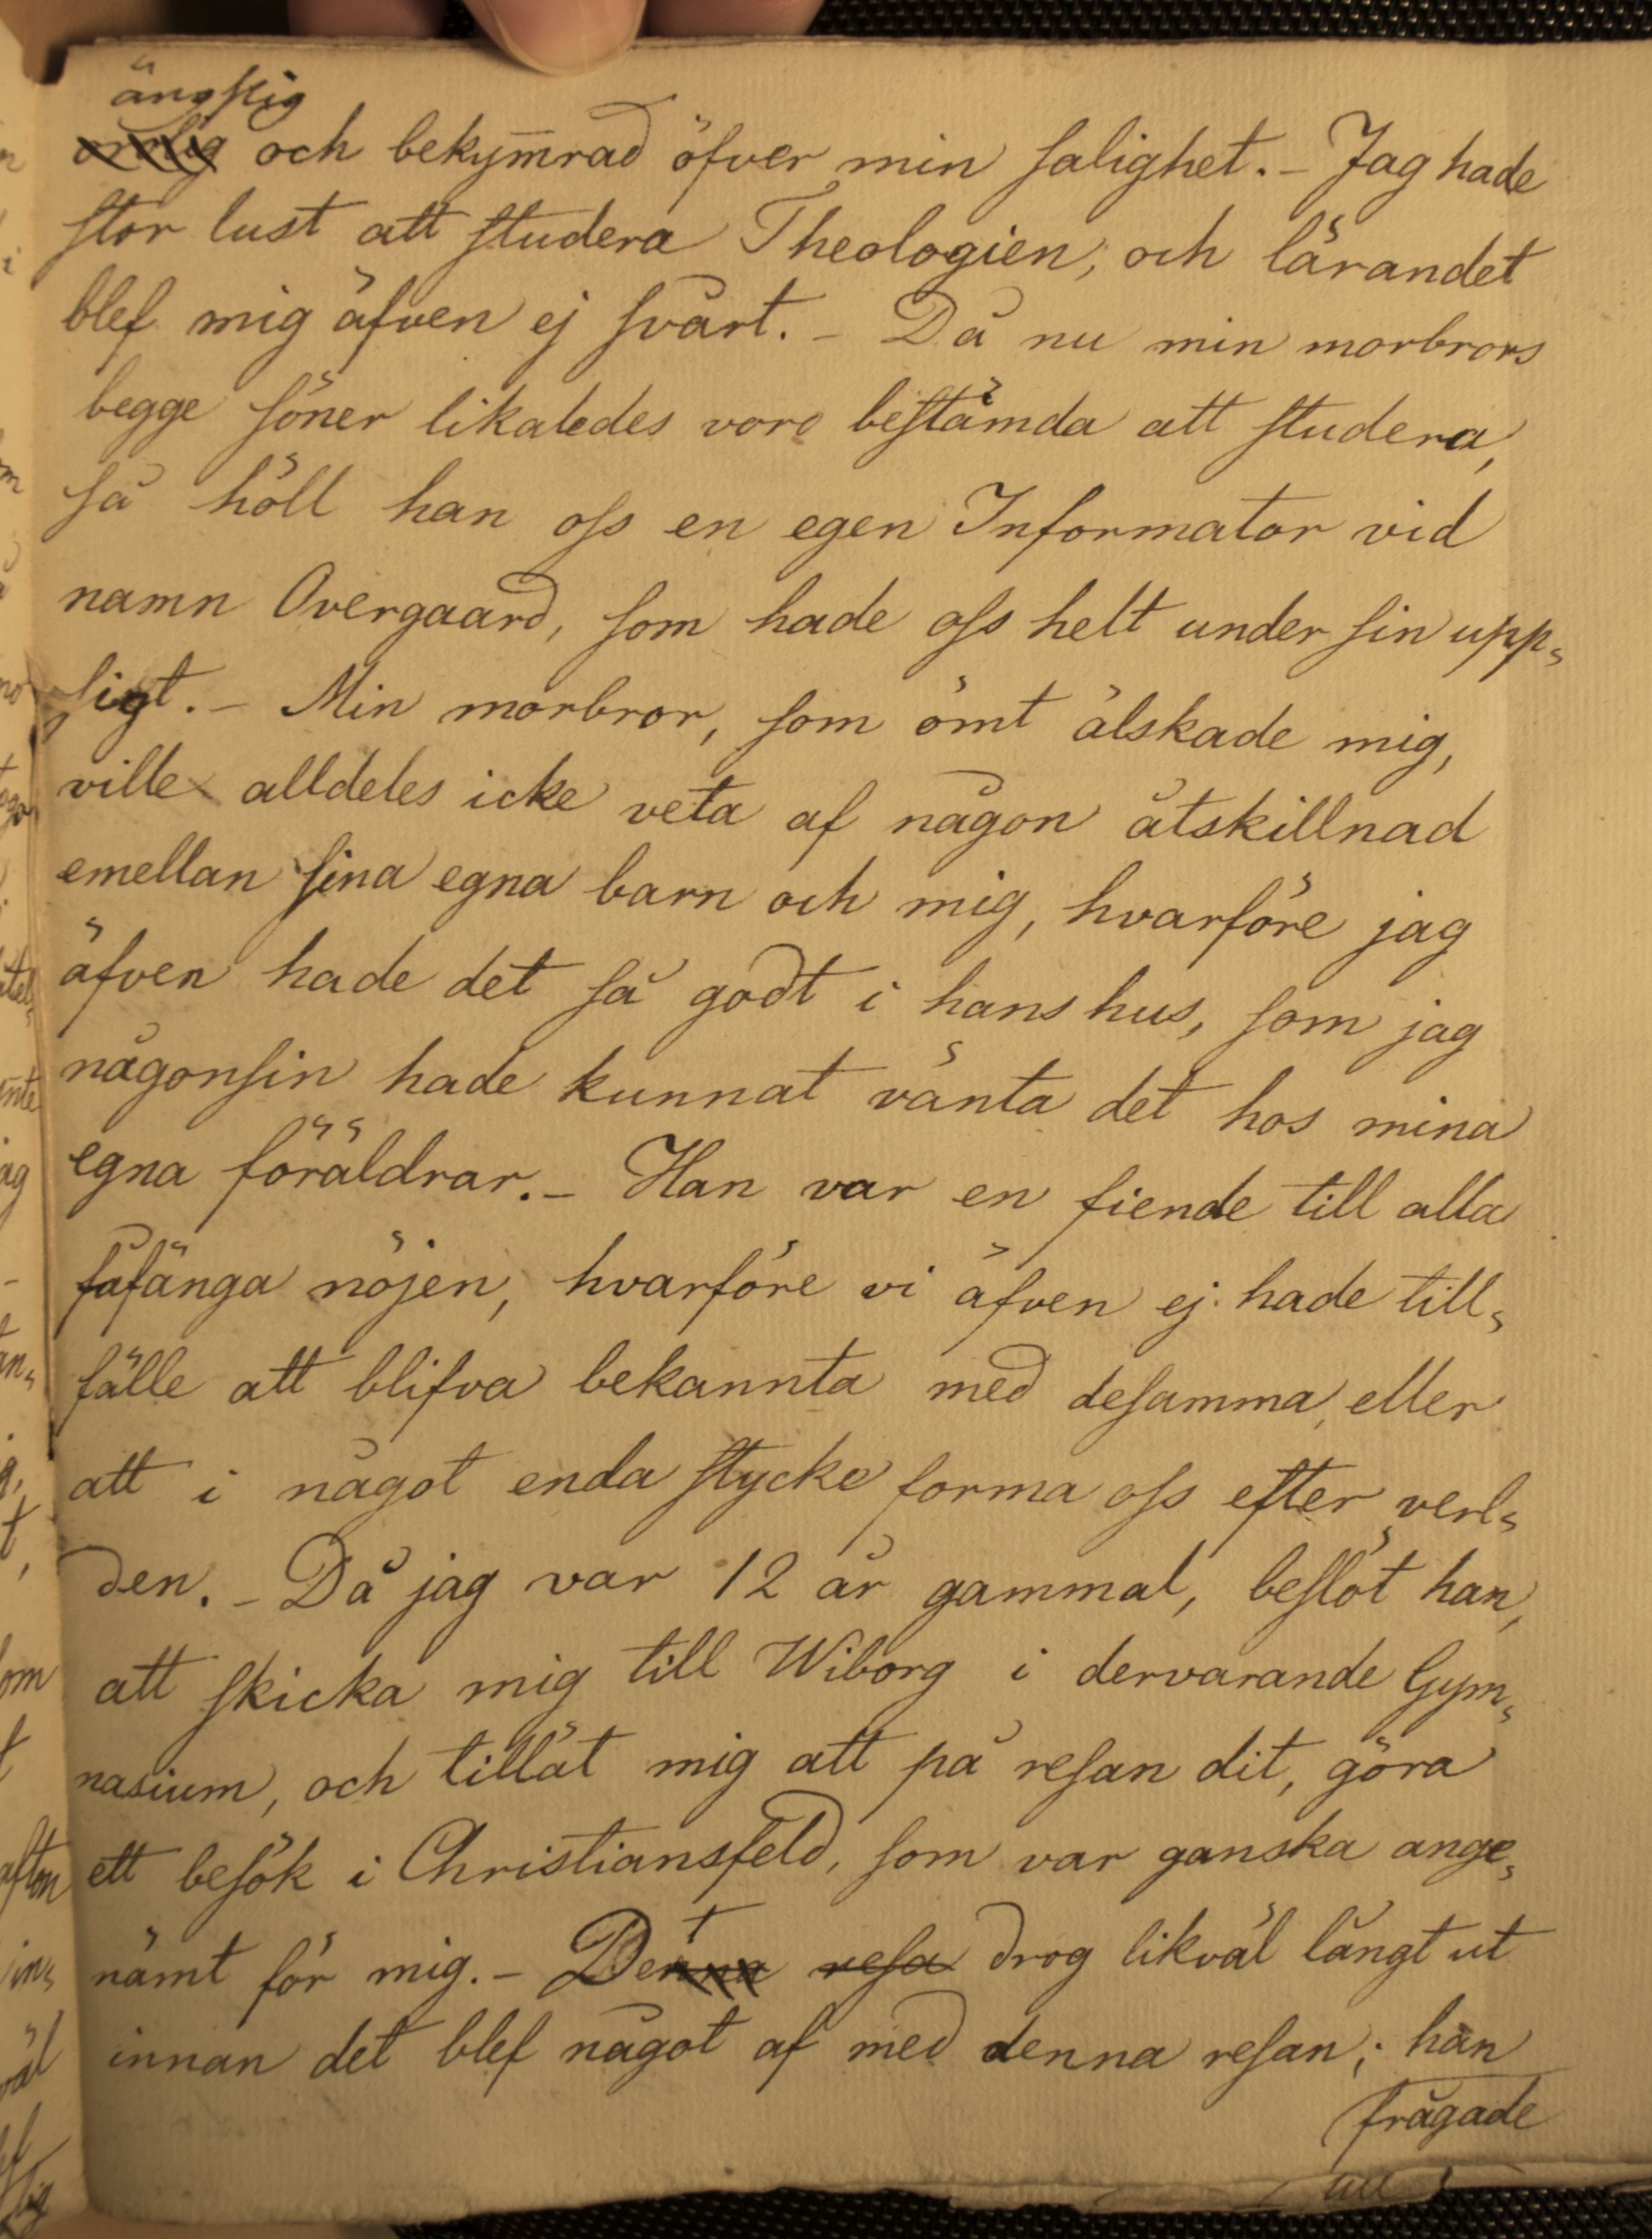 ängslig
och bekym̅rad öfver min salighet. – Jag hade
stor lust att studera Theologien, och lärandet
blef mig äfven ej svårt. – Då nu min morbrors
begge söner likaledes voro bestämda att studera,
så höll han oss en egen Informator vid
namn Overgaard, som hade oss helt under sin upp⸗
sigt. – Min morbror, som ömt älskade mig,
ville alldeles icke veta af någon åtskillnad
emellan sina egna barn och mig, hvarföre jag
äfven hade det så godt i hans hus, som jag
någonsin hade kunnat vänta det hos mina
egna föräldrar. – Han var en fiende till alla
fåfänga nöjen, hvarföre vi äfven ej hade till⸗
fälle att blifva bekannta med desamma, eller
att i något enda stycke forma oss efter verl⸗
den. – Då jag var 12 år gammal, beslöt han,
att skicka mig till Wiborg i dervarande Gym⸗
nasium, och tillät mig att på resan dit, göra
ett besök i Christiansfeld, som var ganska ange⸗
nämt för mig. – Denna resa drog likväl långt ut
innan det blef något af med denna resan; han
frågade